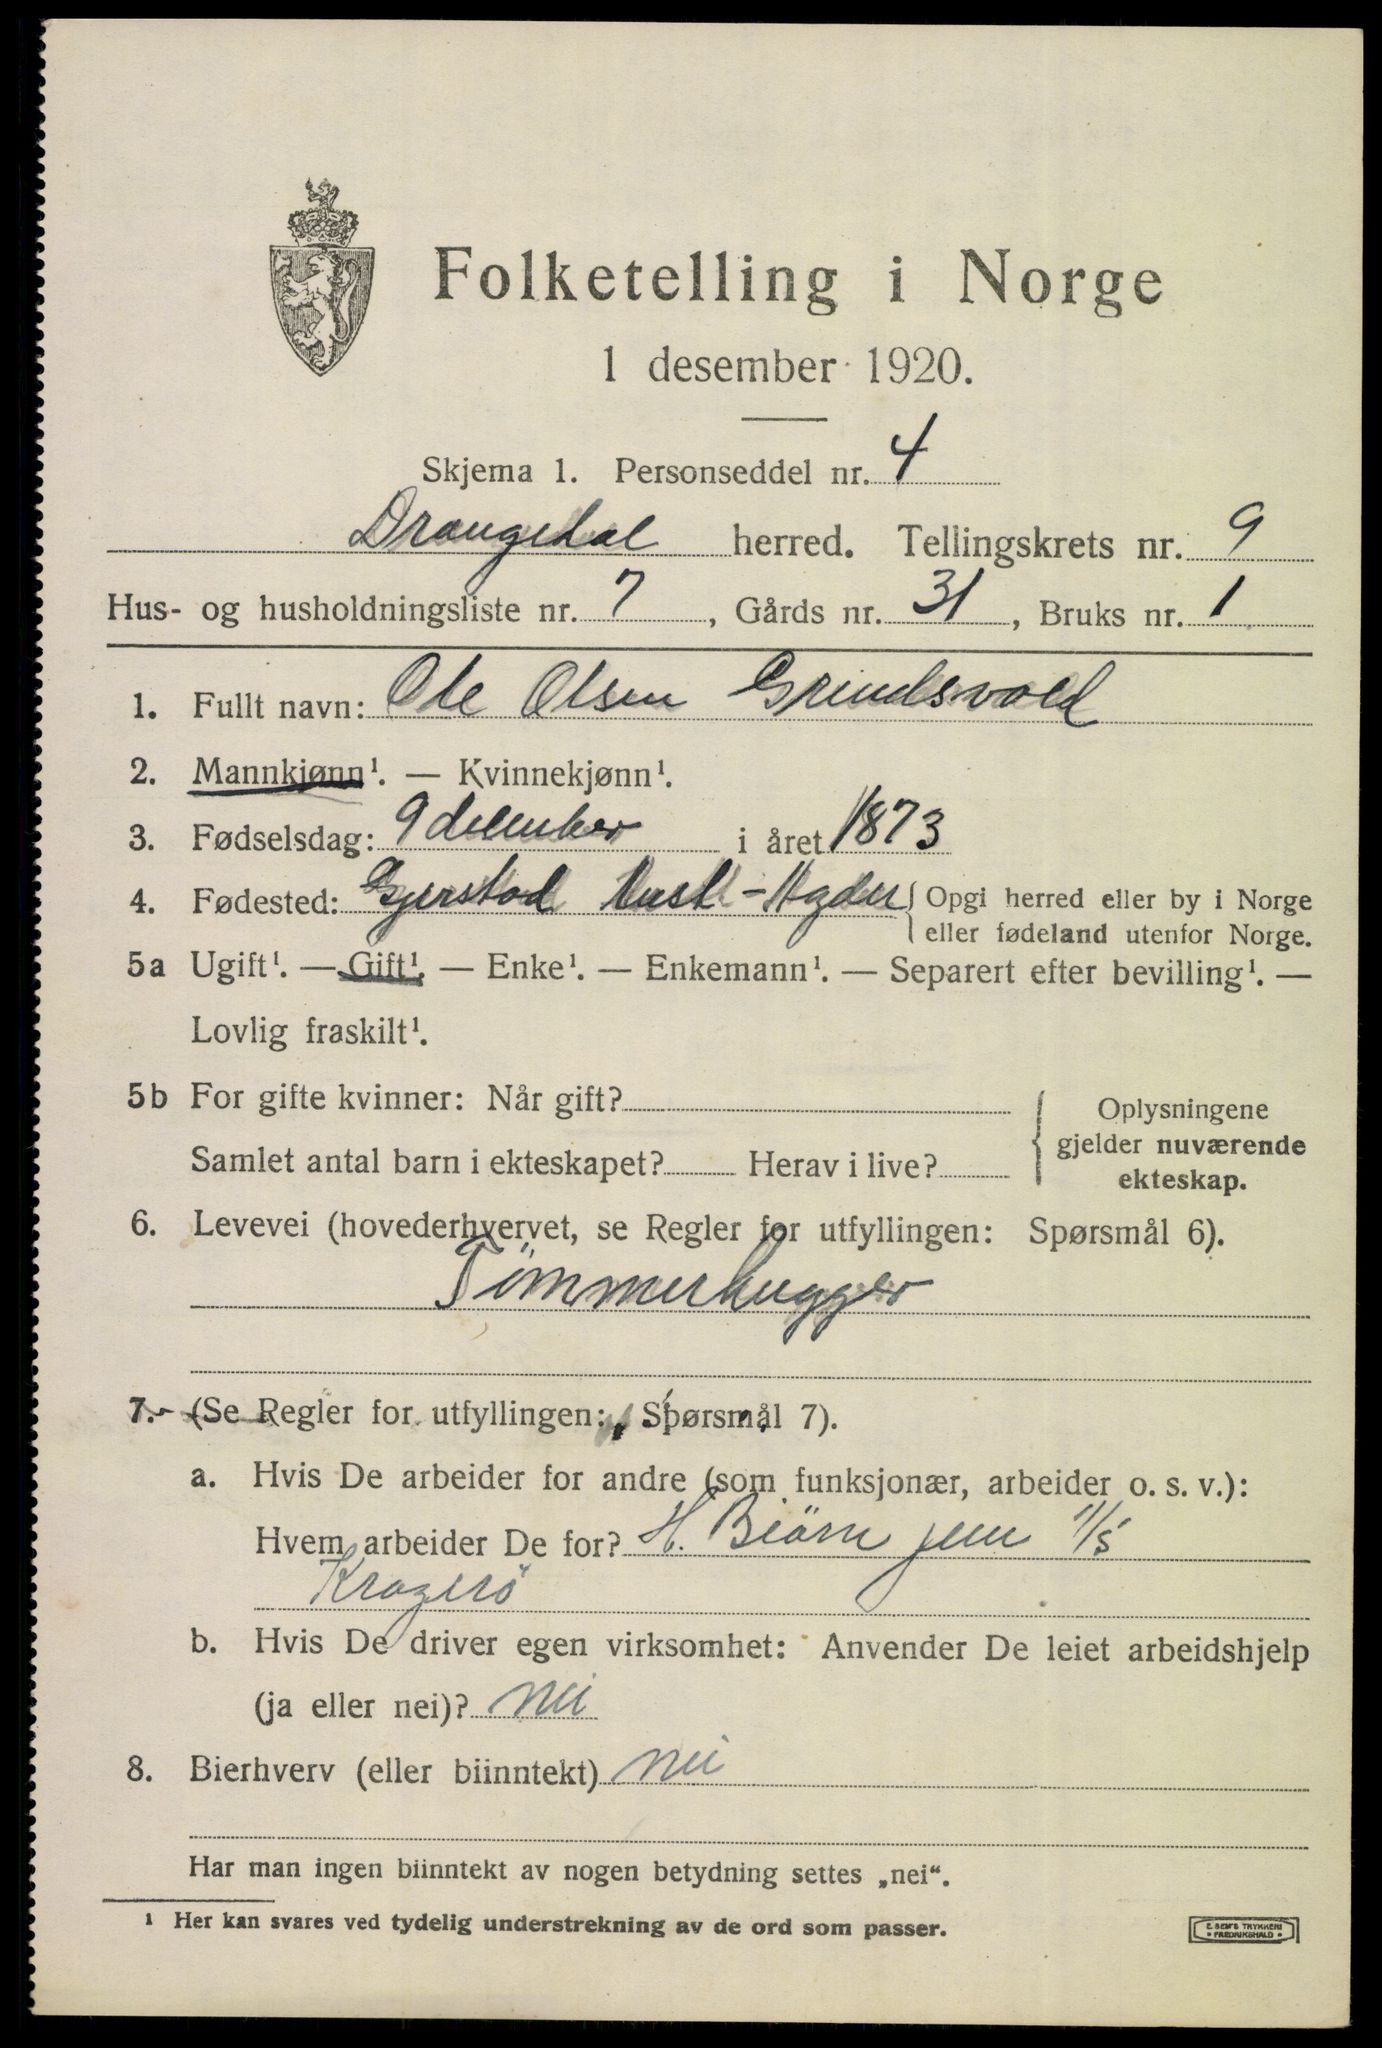 Folketelling i Norge
1 desember 1920.
Skjema 1. Personseddel nr. 4
Drangedal herred. Tellingskrets nr. 9
Hus- og husholdningsliste nr. 7, Gårds nr. 31, Bruks nr. 1
1. Fullt navn: Ole Olsen Grindsvold
2. Mannkjønn¹. — Kvinnekjønn¹.
3. Fødselsdag: 9 december i året 1873
4. Fødested: Gjerstad -Agder { Opgi herred eller by i Norge
eller fødeland utenfor Norge.
5a Ugift¹. — Gift¹. — Enke¹. — Enkemann¹. — Separert efter bevilling¹. —
Lovlig fraskilt¹.
5b For gifte kvinner: Når gift?
Samlet antal barn i ekteskapet? Herav i live?
Oplysningene
gjelder nuværende
ekteskap.
6. Levevei (hovederhvervet, se Regler for utfyllingen: Spørsmål 6).
Tömmerhugger
7. (Se Regler for utfyllingen: Spørsmål 7).
a. Hvis De arbeider for andre (som funksjonær, arbeider o. s. v.):
Hvem arbeider De for? H. Biörn jun
Kragerö
b. Hvis De driver egen virksomhet: Anvender De leiet arbeidshjelp
(ja eller nei)? nei
8. Bierhverv (eller biinntekt) nei
Har man ingen biinntekt av nogen betydning settes „nei“.
¹ Her kan svares ved tydelig understrekning av de ord som passer.
E. SEM'S TRYKKERI
• FREDRIKSHALD •